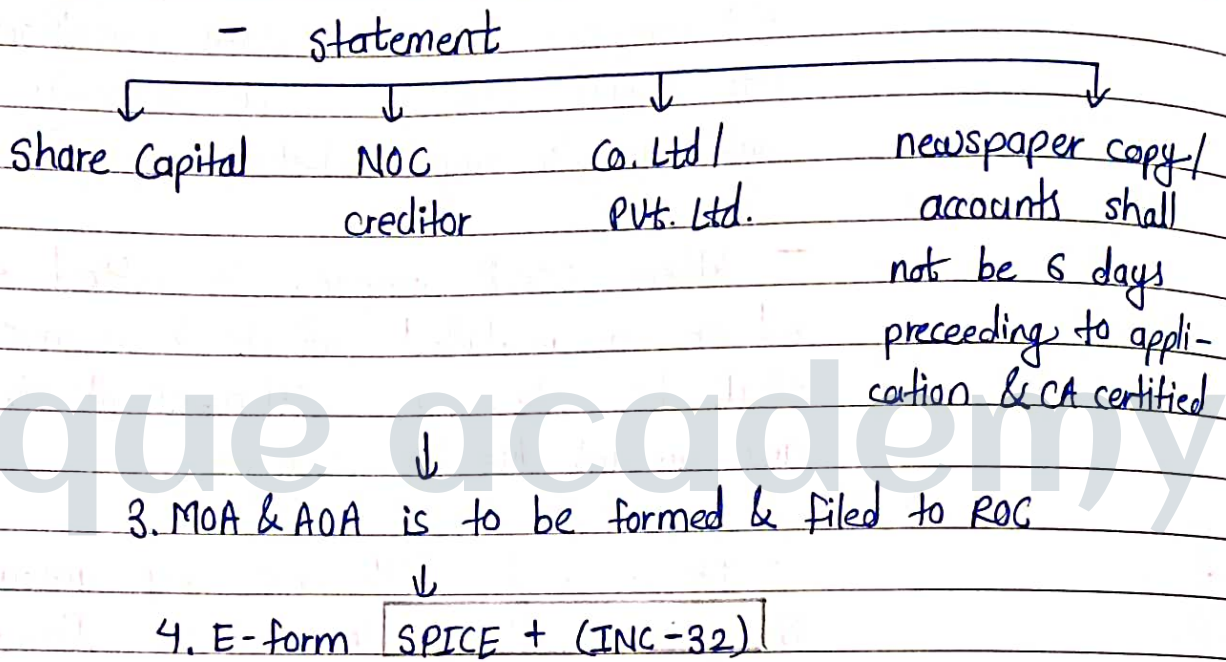 - statement
Share Capital
NOC
creditor
Co. Ltd/
Pvt. Ltd.
newspaper copy/
accounts shall
not be 6 days
preceeding to appli-
cation & CA certified
que academy
3. MOA & AOA is to be formed & filed to ROC
4. E-form SPICE + (INC-32)